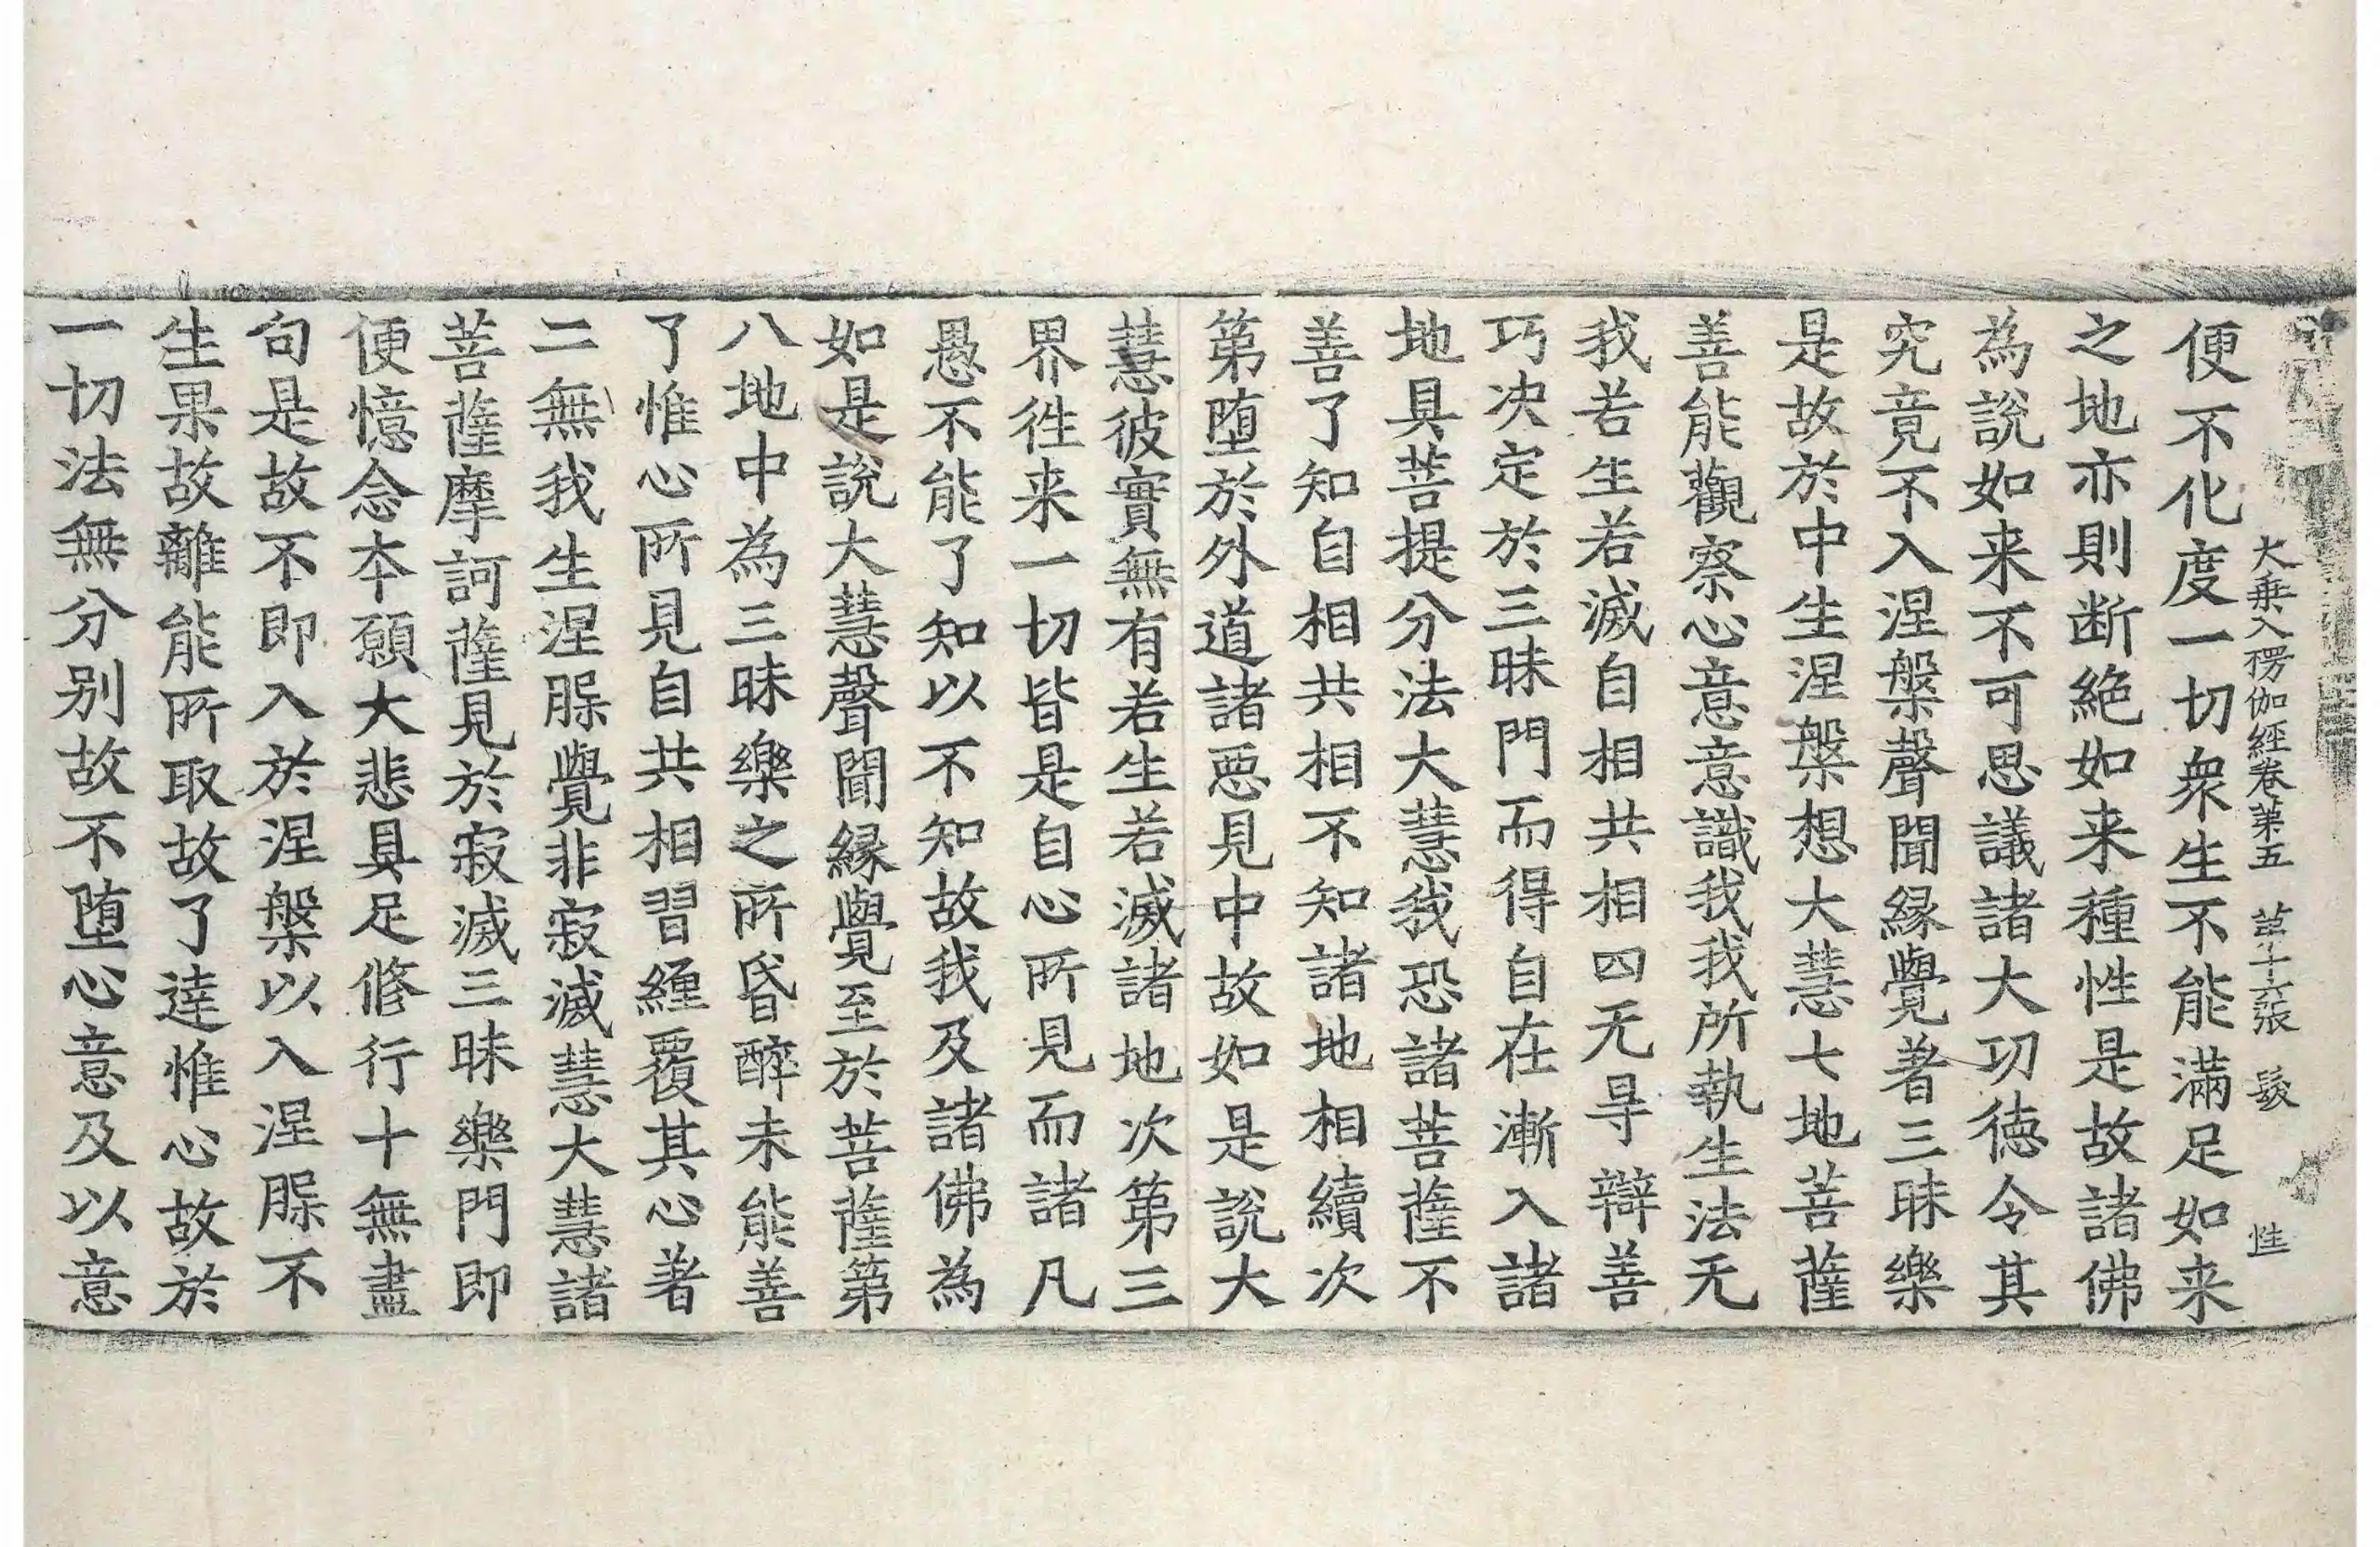 大乗入楞伽經卷第五 苐十六張 髮 性
便不化度一切衆生不能滿足如来
之地亦則断絶如来種性是故諸佛
為說如来不可思議諸大功徳令其
究竟不入涅槃聲聞縁覺著三昧樂
是故於中生涅槃想大慧七地菩薩
善能觀察心意意識我我所執生法无
我若生若滅自相共相四无㝵辯善
巧决定於三昧門而得自在漸入諸
地具菩提分法大慧我恐諸菩薩不
善了知自相共相不知諸地相續次
第墮於外道諸惡見中故如是說大
慧彼實無有若生若滅諸地次第三
界徃来一切皆是自心所見而諸凡
愚不能了知以不知故我及諸佛為
如是說大慧聲聞縁覺至於菩薩第
八地中為三昧樂之所昏醉未能善
了惟心所見自共相習纏覆其心著
二無我生涅脲覺非寂滅慧大慧諸
菩薩摩訶薩見於寂滅三昧樂門即
便憶念夲願大悲具足修行十無盡
句是故不即入於涅槃以入涅脲不
生果故離能所取故了達惟心故於
一切法無分别故不墮心意及以意